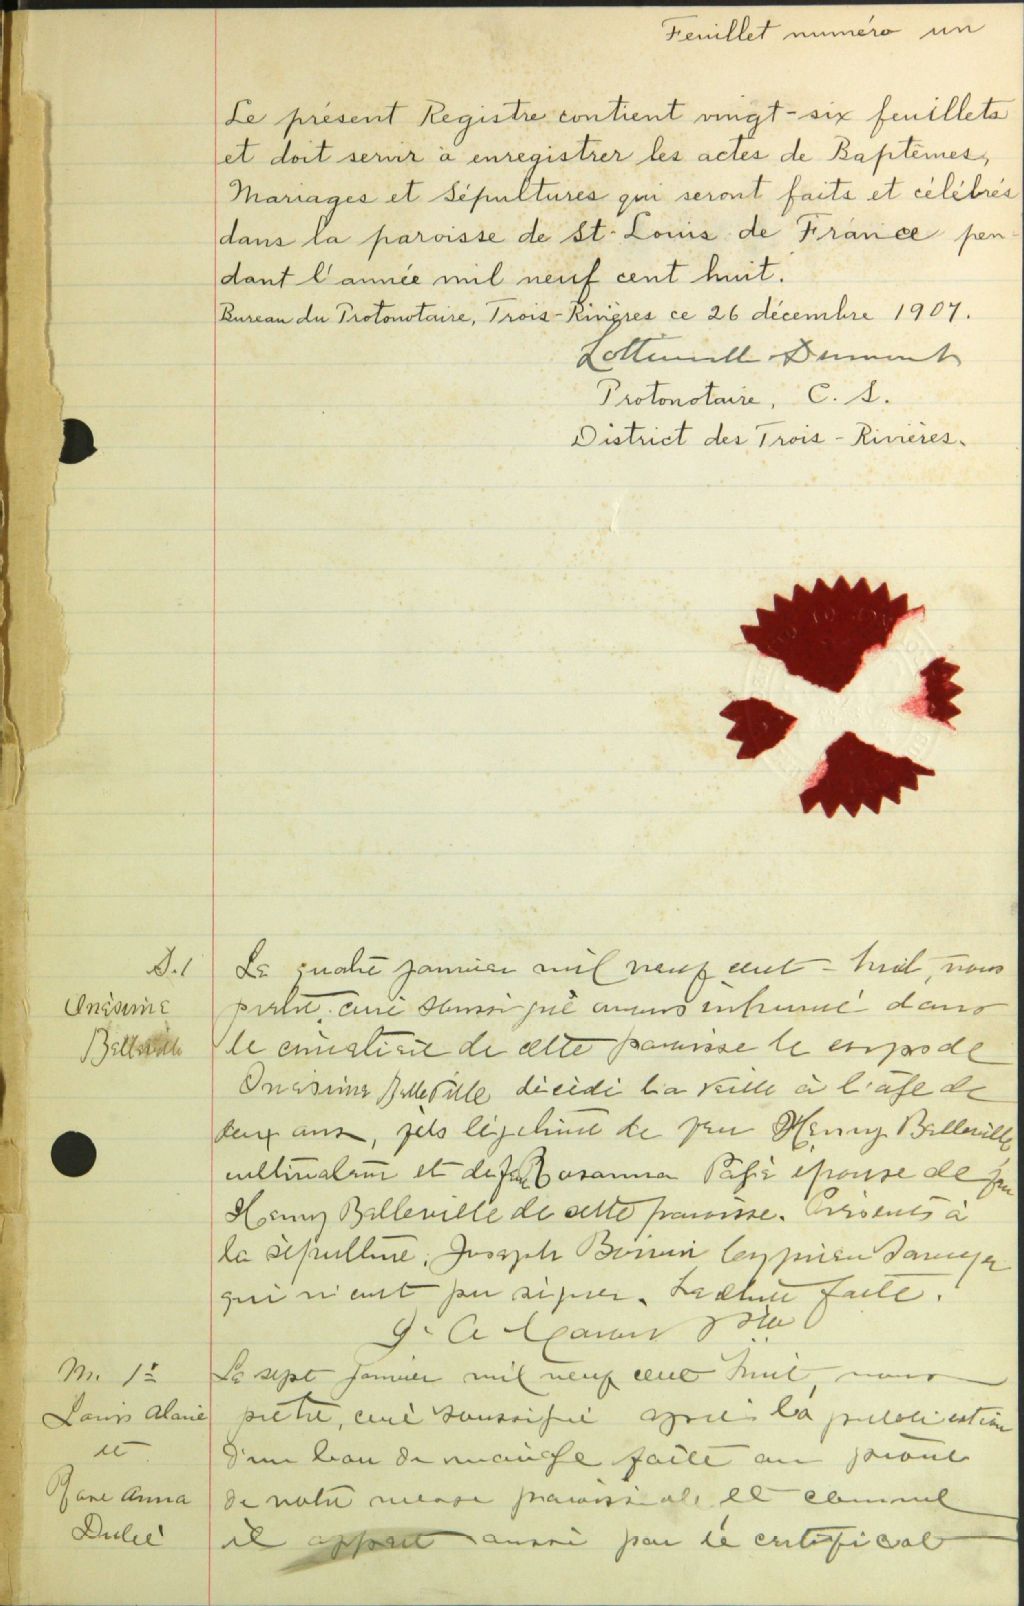 Feuillet numéro un
Le présent Registre contient vingt-six feuillets
et doit servir à enregistrer les actes de Baptêmes,
Mariages et Sépultures qui seront faits et célébrés
dans la paroisse de St-Louis de France pen-
dant l'année mil neuf cent huit.
Bureau du Protonotaire, Trois-Rivières ce 26 décembre 1907.
Protonotaire, C. S.
District des Trois-Rivières.
S. 1
Onésime
Belleville
Le quatre janvier mil neuf cent-huit, nous
prêtre, curé soussigné avons inhumé dans
le cimetière de cette paroisse le corps de
Onésime Belleville décédé la veille à l'âge de
deux ans, fils légitime de feu Henry Belleville
cultivateur et de feue Rosanna épouse de feu
Henry Belleville de cette paroisse. Présents à
la sépulture, Joseph Boivin
qui n'ont pu signer. Lecture faite.
ptre
M. 1e
Louis Alarie
et
Rose Anna
Dubé
Le sept janvier mil neuf cent huit, nous
prêtre, curé soussigné après la publication
d'un ban de mariage faite au prône
de notre messe paroissiale et comme
il appert aussi par le certificat